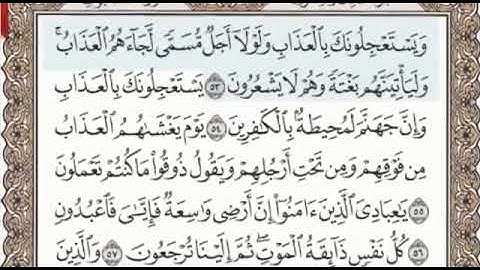 وَيَسْتَعْجِلُونَكَ بِٱلْعَذَابِ وَلَوْلَآ أَجَلٌ مُّسَمًّى لَّجَآءَهُمُ ٱلْعَذَابُۚ
وَلَيَأْتِيَنَّهُم بَغْتَةً وَهُمْ لَا يَشْعُرُونَ ٥٣ يَسْتَعْجِلُونَكَ بِٱلْعَذَابِ
وَإِنَّ جَهَنَّمَ لَمُحِيطَةٌۢ بِٱلْكَٰفِرِينَ ٥٤ يَوْمَ يَغْشَىٰهُمُ ٱلْعَذَابُ
مِن فَوْقِهِمْ وَمِن تَحْتِ أَرْجُلِهِمْ وَيَقُولُ ذُوقُوا۟ مَا كُنتُمْ تَعْمَلُونَ
٥٥ يَٰعِبَادِىَ ٱلَّذِينَ ءَامَنُوٓا۟ إِنَّ أَرْضِى وَٰسِعَةٌ فَإِيَّٰىَ فَٱعْبُدُونِ
٥٦ كُلُّ نَفْسٍ ذَآئِقَةُ ٱلْمَوْتِۖ ثُمَّ إِلَيْنَا تُرْجَعُونَ ٥٧ وَٱلَّذِينَ